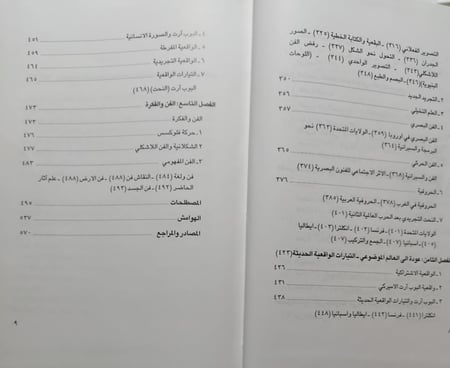 التصوير الفعلاني (٣١٦) ـ البقعية والكتابة الخطية (٣٢٥) ـ الصور
الجدران (٣٢٦) ـ التحول نحو الشكل (٣٣٧) ـ رفض الفن
اللاشكلي (٣٤٣) ـ التصوير الواحدي (٣٤٤) ـ (اللوحات
البنيوية) (٣٤٦)ـ البصم والطبع (٣٤٨)
٢ـ التجريد الجديد ٣٥٠
٣ـ العلم التخيلي ٣٥٧
٤ـ الفن البصري
الفن البصري في أوروبا (٣٥٩)ـ الولايات المتحدة (٣٦٣) نحو
البرمجة والسبرانية (٣٦٤)
٥ـ الفن الحركي ٣٦٥
الفن والسبرانية (٣٦٨)ـ الاثر الاجتماعي للفنون البصرية (٣٧٤)
٦ـ الحروفية ٣٧٦
الحروفية في الغرب (٣٧٨)ـ الحروفية العربية (٣٨٥)
٧ـ النحت التجريدي بعد الحرب العالمية الثانية (٤٠١)
الولايات المتحدة (٤٠١) ـ فرنسا (٤٠٢) ـ انكلترا (٤٠٢) ـ ايطاليا
(٤٠٥) ـ اسبانيا (٤٠٧) ـ الجمع والتركيب (٤٠٧)
الفصل الثامن: عودة الى العالم الموضوعي ـ التيارات الواقعية الحديثة (٤٢٣)
١ـ الواقعية الاشتراكية ٤٢٦
٢ـ واقعية البوب آرت الاميركي ٤٣١
٣ـ البوب آرت والتيارات الواقعية الحديثة ٤٣٨
انكلترا (٤٤١) ـ فرنسا (٤٤٢) ـ ايطاليا وأسبانيا (٤٤٨)
٤ـ البوب آرت والصورة الانسانية ٤٥١
٥ـ الواقعية المفرطة ٤٥٩
٦ـ الواقعية التجريدية ٤٦٤
٧ـ التيارات الواقعية ٤٦٥
البوب آرت (النحت) (٤٦٨)
الفصل التاسع: الفن والفكرة ٤٧٣
الفن والفكرة ٤٧٣
١ـ حركة فلوكسس ٤٧٦
٢ـ الشكلانية والفن اللاشكلي ٤٧٧
٣ـ الفن المفهومي ٤٨٣
فن ولغة (٤٨٤) ـ النقاش فن (٤٨٨) ـ فن الارض (٤٨٨) ـ علم آثار
الحاضر (٤٩٢) ـ فن الجسد (٤٩٢)
المصطلحات ٤٩٥
الهوامش ٥٢٧
المصادر والمراجع ٥٧٠
٩